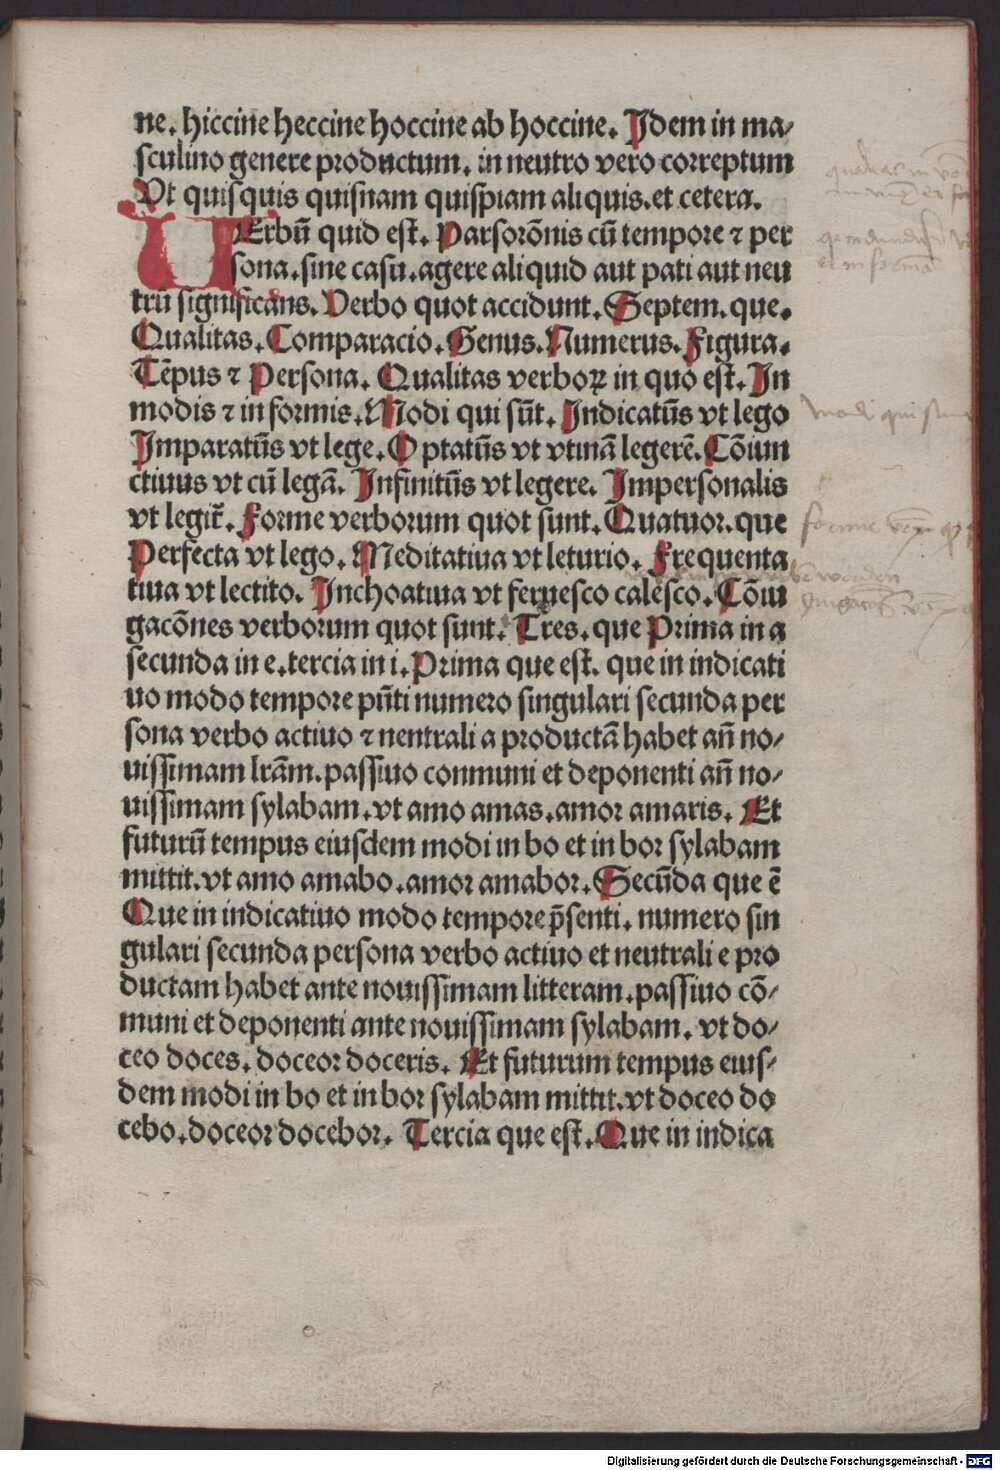 ne. hiccine heccine hoccine ab hoccine. Idem in ma/
sculino genere productum. in neutro vero correptum
Vt quisquis quisnam quispiam aliquis. et cetera.
UErbū quid est. Parsorōnis cū tempore ⁊ per
sona. sine casu. agere aliquid aut pati aut neu
trū significans. Verbo quot accidunt. Septem. que.
Qualitas. Comparacio. Genus. Numerus. Figura.
Tēpus ⁊ Persona. Qualitas verboꝝ in quo est. In
modis ⁊ in formis. Modi qui sūt. Indicatūs vt lego
Imparatūs vt lege. Optatūs vt vtinā legerē. Cōiun
ctiuus vt cū legā. Infinitūs vt legere. Impersonalis
vt legit̄. Forme verborum quot sunt. Quatuor. que
Perfecta vt lego. Meditatiua vt leturio. Frequenta
tiua vt lectito. Inchoatiua vt feruesco calesco. Cōiu
gacōnes verborum quot sunt. Tres. que Prima in a
secunda in e. tercia in i. Prima que est. que in indicati
uo modo tempore pn̄ti numero singulari secunda per
sona verbo actiuo ⁊ nentrali a productā habet an̄ no/
uissimam lrām. passiuo conmuni et deponenti an̄ no/
uissimam sylabam. vt amo amas. amor amaris. Et
futurū tempus eiusdem modi in bo et in bor sylabam
mittit. vt amo amabo. amor amabor. Secūda que ē
Que in indicatiuo modo tempore p̄senti. numero sin
gulari secunda persona verbo actiuo et neutrali e pro
ductam habet ante nouissimam litteram. passiuo cō/
muni et deponenti ante nouissimam sylabam. vt do/
ceo doces. doceor doceris. Et futurum tempus eius/
dem modi in bo et in bor sylabam mittit. vt doceo do
cebo. doceor docebor. Tercia que est. Que in indica
modi qui sunt
Digitalisierung gefördert durch die Deutsche Forschungsgemeinschaft - DFG